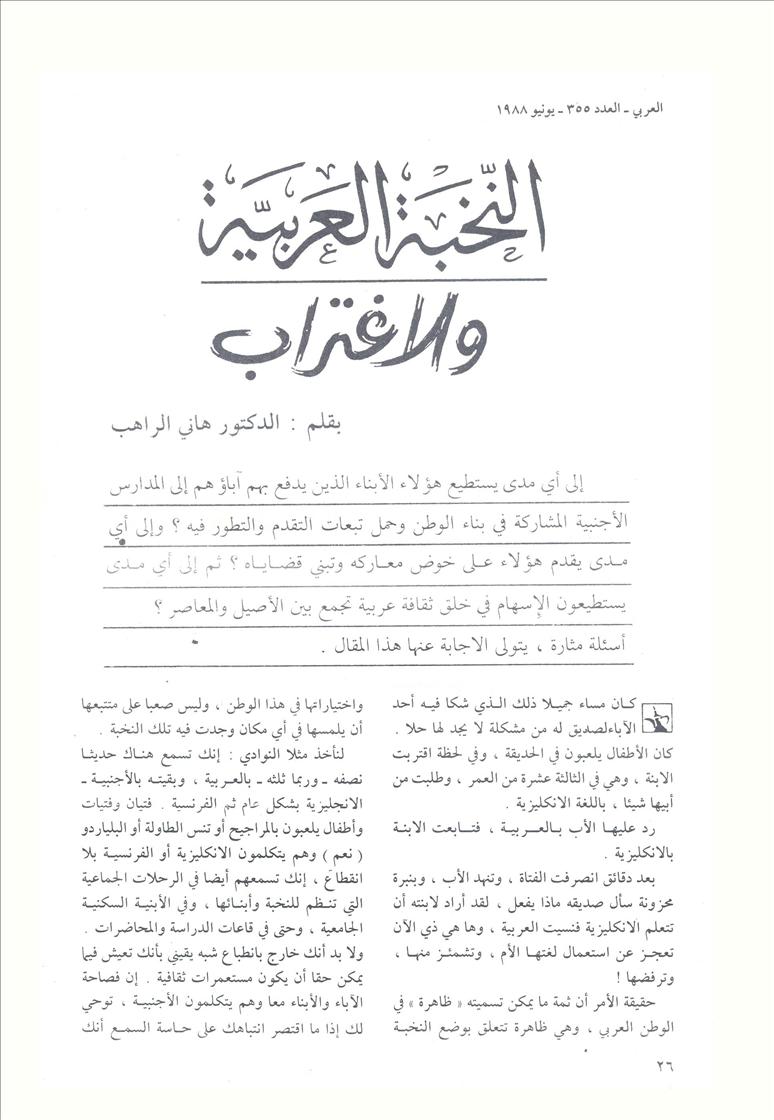 العربي ـ العدد ٣٥٥ ـ يونيو ١٩٨٨
النخبة العربية
والاغتراب
بقلم : الدكتور هاني الراهب
إلى أي مدى يستطيع هؤلاء الأبناء الذين يدفع بهم آباؤهم إلى المدارس
الأجنبية المشاركة في بناء الوطن وحمل تبعات التقدم والتطور فيه ؟ وإلى أي
مدى يقدم هؤلاء على خوض معاركه وتبني قضاياه ؟ ثم إلى أي مدى
يستطيعون الإسهام في خلق ثقافة عربية تجمع بين الأصيل والمعاصر ؟
أسئلة مثارة ، يتولى الاجابة عنها هذا المقال .
كان مساء جميلا ذلك الذي شكا فيه أحد
الآباء لصديق له من مشكلة لا يجد لها حلا .
كان الأطفال يلعبون في الحديقة ، وفي لحظة اقتربت
الابنة ، وهي في الثالثة عشرة من العمر ، وطلبت من
أبيها شيئا ، باللغة الانكليزية .
رد عليها الأب بالعربية ، فتابعت الابنة
بالانكليزية .
بعد دقائق انصرفت الفتاة ، وتنهد الأب ، وبنبرة
محزونة سأل صديقه ماذا يفعل ، لقد أراد لابنته أن
تتعلم الانكليزية فنسيت العربية ، وها هي ذي الآن
تعجز عن استعمال لغتها الأم ، وتشمئز منها ،
وترفضها !
حقيقة الأمر أن ثمة ما يمكن تسميته « ظاهرة » في
الوطن العربي ، وهي ظاهرة تتعلق بوضع النخبة
واختياراتها في هذا الوطن ، وليس صعبا على متتبعها
أن يلمسها في أي مكان وجدت فيه تلك النخبة .
لنأخذ مثلا النوادي : إنك تسمع هناك حديثا
نصفه ـ وربما ثلثه ـ بالعربية ، وبقيته بالأجنبية ـ
الانجليزية بشكل عام ثم الفرنسية . فتيان وفتيات
وأطفال يلعبون بالمراجيح أو تنس الطاولة أو البلياردو
( نعم ) وهم يتكلمون الانكليزية أو الفرنسية بلا
انقطاع ، إنك تسمعهم أيضا في الرحلات الجماعية
التي تنظم للنخبة وأبنائها ، وفي الأبنية السكنية
الجامعية ، وحتى في قاعات الدراسة والمحاضرات .
ولا بد أنك خارج بانطباع شبه يقيني بأنك تعيش فيما
يمكن حقا أن يكون مستعمرات ثقافية . إن فصاحة
الآباء والأبناء معا وهم يتكلمون الأجنبية ، توحي
لك إذا ما اقتصر انتباهك على حاسة السمع أنك
٢٦